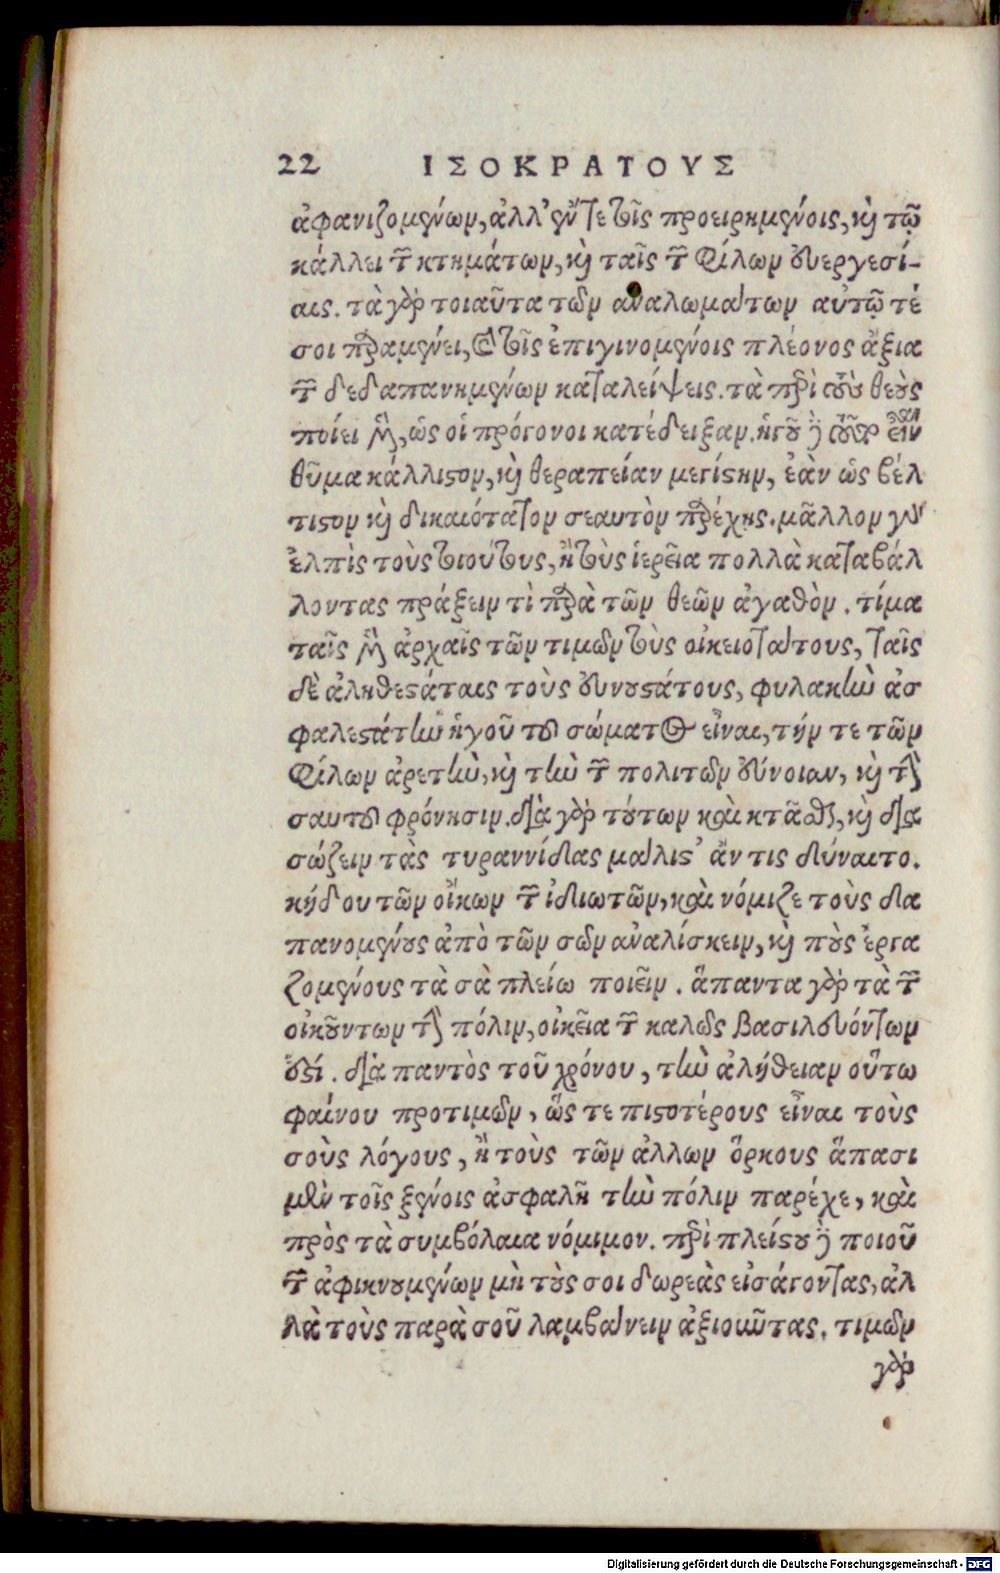 22 ΙΣΟΚΡΑΤΟΥΣ
ἀφανιζομένων, ἀλλ' ἔν τε τοῖς προειρημένοις, καὶ τῷ
κάλλει τῶν κτημάτων, καὶ ταῖς τῶν φίλων εὐεργεσί-
αις. τὰ γὰρ τοιαῦτα τῶν ἀναλωμάτων αὐτῷ τέ
σοι παραμένει, καὶ τοῖς ἐπιγινομένοις πλέονος ἄξια
τῶν δεδαπανημένων καταλείψεις. τὰ περὶ τοὺς θεοὺς
ποίει μὲν, ὡς οἱ πρόγονοι κατέδειξαν. ἡγοῦ δὲ τοῦτο εἶναι
θῦμα κάλλιστον, καὶ θεραπείαν μεγίστην, ἐὰν ὡς βέλ
τιστον καὶ δικαιότατον σεαυτὸν παρέχῃς. μᾶλλον γὰρ
ἐλπὶς τοὺς τοιούτους, ἢ τοὺς ἱερεῖα πολλὰ καταβάλ
λοντας πράξειν τὶ παρὰ τῶν θεῶν ἀγαθὸν. τίμα
ταῖς μὲν ἀρχαῖς τῶν τιμῶν τοὺς οἰκειοτάτους, ταῖς
δὲ ἀληθεστάταις τοὺς εὐνουστάτους, φυλακὴν ἀσ
φαλεστάτην ἡγοῦ τοῦ σώματος εἶναι, τήν τε τῶν
φίλων ἀρετὴν, καὶ τὴν τῶν πολιτῶν εὔνοιαν, καὶ τὴν
σαυτοῦ φρόνησιν. διὰ γὰρ τούτων καὶ κτᾶσθαι, καὶ δια
σώζειν τὰς τυραννίδας μάλιστ' ἄν τις δύναιτο.
κήδου τῶν οἴκων τῶν ἰδιωτῶν, καὶ νόμιζε τοὺς δα
πανομένους ἀπὸ τῶν σῶν ἀναλίσκειν, καὶ τοὺς ἐργα
ζομένους τὰ σὰ πλείω ποιεῖν. ἅπαντα γὰρ τὰ τῶν
οἰκούντων τὴν πόλιν, οἰκεῖα τῶν καλῶς βασιλευόντων
ἐστί. διὰ παντὸς τοῦ χρόνου, τὴν ἀλήθειαν οὕτω
φαίνου προτιμῶν, ὥς τε πιστοτέρους εἶναι τοὺς
σοὺς λόγους, ἢ τοὺς τῶν ἄλλων ὅρκους ἅπασι
μὲν τοῖς ξένοις ἀσφαλῆ τὴν πόλιν παρέχε, καὶ
πρὸς τὰ συμβόλαια νόμιμον. περὶ πλείστου δὲ ποιοῦ
τῶν ἀφικνουμένων μὴ τοὺς σοι δωρεὰς εἰσάγοντας, ἀλ
λὰ τοὺς παρὰ σοῦ λαμβάνειν ἀξιοῦντας. τιμῶν
γὰρ
Digitalisierung gefördert durch die Deutsche Forschungsgemeinschaft - DFG